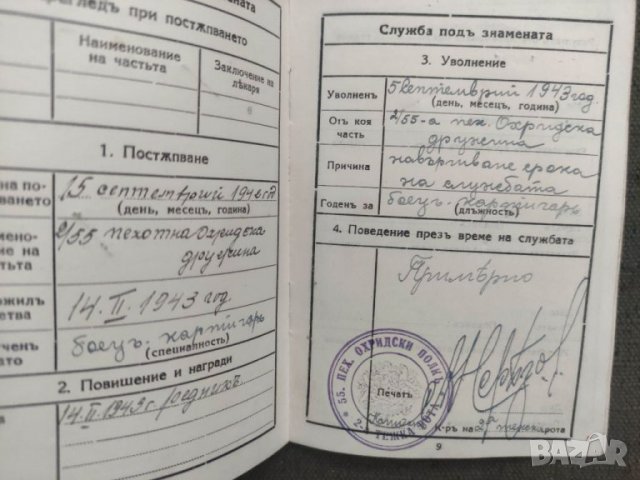 знамената
прегледъ при постѫпването
Наименование
на частьта
Заключение на
лѣкаря
1. Постѫпване
на по-
ването
15 септемврий 194
(день, месецъ, година)
2/55 пехотна Охридска
дружина
14.II.1943 год
боецъ-картечарь
(специалность)
2. Повишение и награди
14.II.1943 г. редникъ
Служба подъ знамената
3. Уволнение
Уволненъ
5 септемврий 1943 год.
(день, месецъ, година)
Отъ коя
часть
2/55-а пех. Охридска
дружина
Причина
навършване срока
на службата
Годенъ за
боецъ-картечарь
(длъжность)
4. Поведение презъ време на службата
Примѣрно
55. ПЕХ. ОХРИДСКИ ПОЛКЪ
2. ТЕЖКА РОТА
Печать
К-ръ на
рота
9
bazar.bg